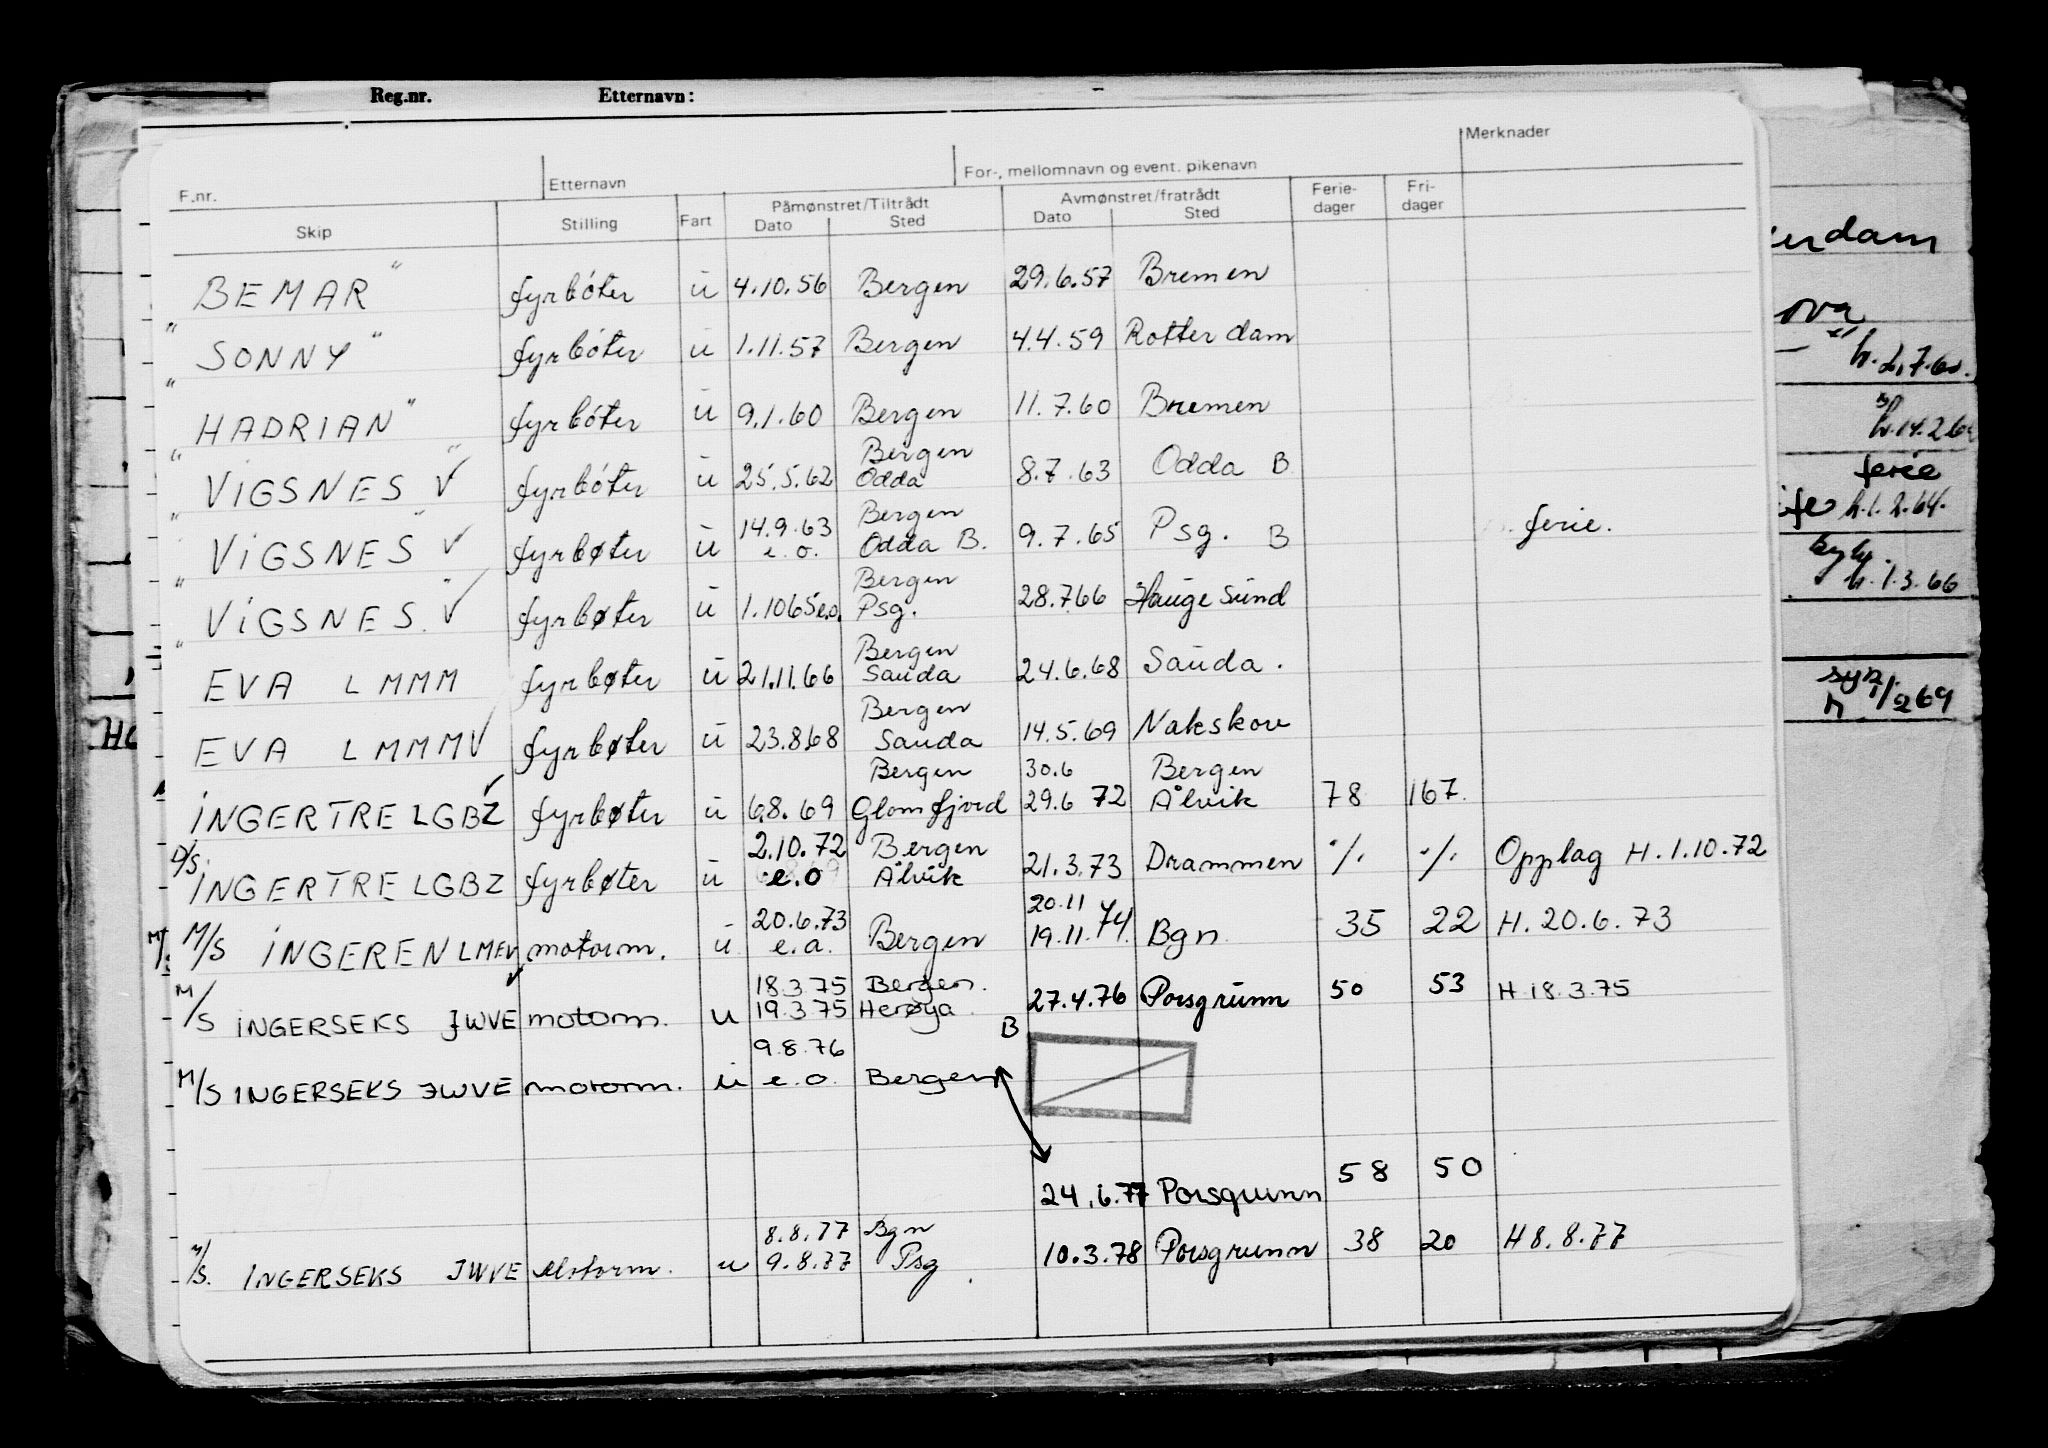 Reg.nr. Etternavn:
Merknader
F.nr. Etternavn For-, mellomnavn og event. pikenavn
Skip Stilling Fart Påmønstret/Tiltrådt Dato Sted Avmønstret/fratrådt Dato Sted Ferie-dager Fri-dager
BEMAR" fyrbóter u 4.10.56 Bergen 29.6.57 Bremen
" SONNY " fyrbóter u 1.11.57 Bergen 4.4.59 Rotterdam
" HADRIAN" fyrbóter u 9.1.60 Bergen 11.7.60 Bremen
Bergen
" VIGSNES " ✓ fyrbóter u 25.5.62 Odda 8.7.63 Odda B
14.9.63 Bergen
" VIGSNES " ✓ fyrbøter u e.o. Odda B. 9.7.65 Psg. B ferie.
Bergen
" VIGSNES ✓ fyrbøter u 1.10 65 e.o. Psg. 28.7.66 Haugesund
Bergen
" EVA LMMM fyrbøter u 21.11.66 Sauda 24.6.68 Sauda.
Bergen
EVA LMMM ✓ fyrbøter u 23.8.68 Sauda 14.5.69 Nakskov
Bergen 30.6 Bergen
INGERTRE LGBZ ✓ fyrbøter u 6.8.69 Glomfjord 29.6 72 Ålvik 78 167.
2.10.72 Bergen
D/S INGERTRE LGBZ fyrbøter u e.o Ålvik 21.3.73 Drammen ./. ./. Opplag H.1.10.72
20.6.73 20.11
M/S INGEREN LMEV motorm. u e.a. Bergen 19.11.74. Bgn. 35 22 H. 20.6.73
18.3.75 Bergen.
M/S INGERSEKS JWVE motorm. u 19.3.75 Herøya. 27.4.76 Porsgrunn 50 53 H 18.3.75
9.8.76 B
M/S INGERSEKS JWVE motorm. u e.o. Bergen
24.6.77 Porsgrunn 58 50
8.8.77 Bgn
M/S. INGERSEKS JWVE Motorm. u 9.8.77 Psg. 10.3.78 Porsgrunn 38 20 H 8.8.77
h. 2.7.60.
h.14.2.6
ferie
h.1.2.64.
h.1.3.66